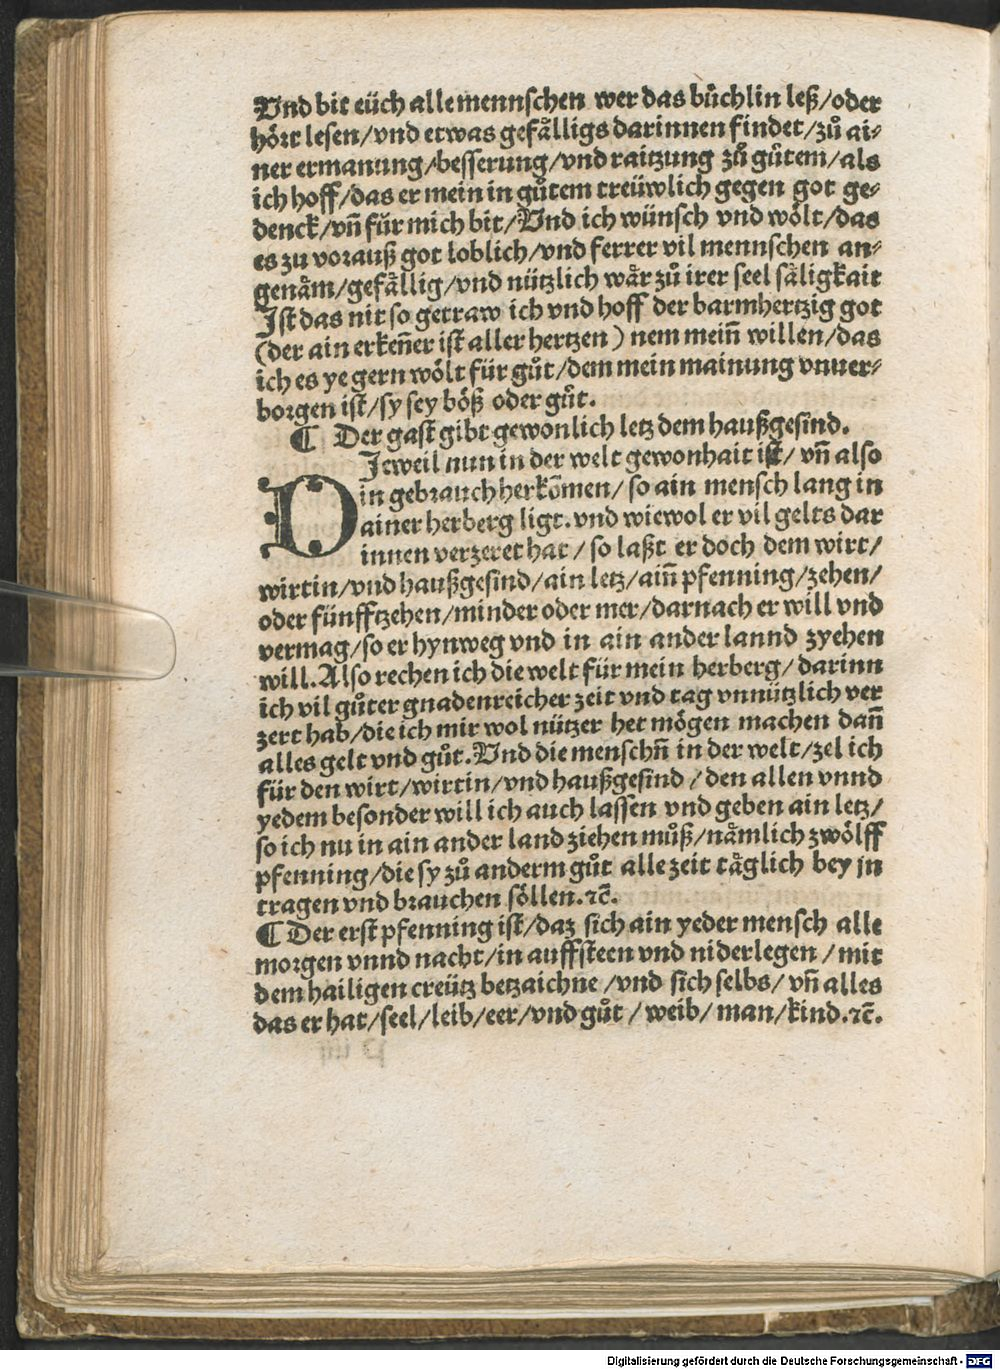 Vnd bit eüch alle mennschen wer das bůchlin leß/oder
hört lesen/vnd etwas gefälligs darinnen findet/zů ai-
ner ermanung/besserung/vnd raitzung zů gůtem/als
ich hoff/das er mein in gůtem treüwlich gegen got ge-
denck/vñ für mich bit/Vnd ich wünsch vnd wölt/das
es zu vorauß got loblich/vnd ferrer vil mennschen an-
genäm/gefällig/vnd nützlich wär zů irer seel säligkait
Ist das nit so getraw ich vnd hoff der barmhertzig got
(der ain erkeñer ist aller hertzen) nem meiñ willen/das
ich es ye gern wölt für gůt/dem mein mainung vnuer-
borgen ist/sy sey böß oder gůt.
¶ Der gast gibt gewonlich letz dem haußgesind.
DJeweil nun in der welt gewonhait ist/ vñ also
in gebrauch herkõmen/so ain mensch lang in
ainer herberg ligt.vnd wiewol er vil gelts dar
innen verzeret hat/so laßt er doch dem wirt/
wirtin/vnd haußgesind/ain letz/aiñ pfenning/zehen/
oder fünfftzehen/minder oder mer/darnach er will vnd
vermag/so er hynweg vnd in ain ander lannd zyehen
will.Also rechen ich die welt für mein herberg/darinn
ich vil gůter gnadenreicher zeit vnd tag vnnützlich ver
zert hab/die ich mir wol nützer het mögen machen dañ
alles gelt vnd gůt.Vnd die menschñ in der welt/zel ich
für den wirt/wirtin/vnd haußgesind/den allen vnnd
yedem besonder will ich auch lassen vnd geben ain letz/
so ich nu in ain ander land ziehen můß/nämlich zwölff
pfenning/die sy zů anderm gůt alle zeit täglich bey jn
tragen vnd brauchen söllen.ꝛc̃.
¶ Der erst pfenning ist/daz sich ain yeder mensch alle
morgen vnnd nacht/in auffsteen vnd niderlegen/mit
dem hailigen creütz betzaichne/vnd sich selbs/vñ alles
das er hat/seel/leib/eer/vnd gůt/weib/man/kind.ꝛc̃.
Digitalisierung gefördert durch die Deutsche Forschungsgemeinschaft - DFG